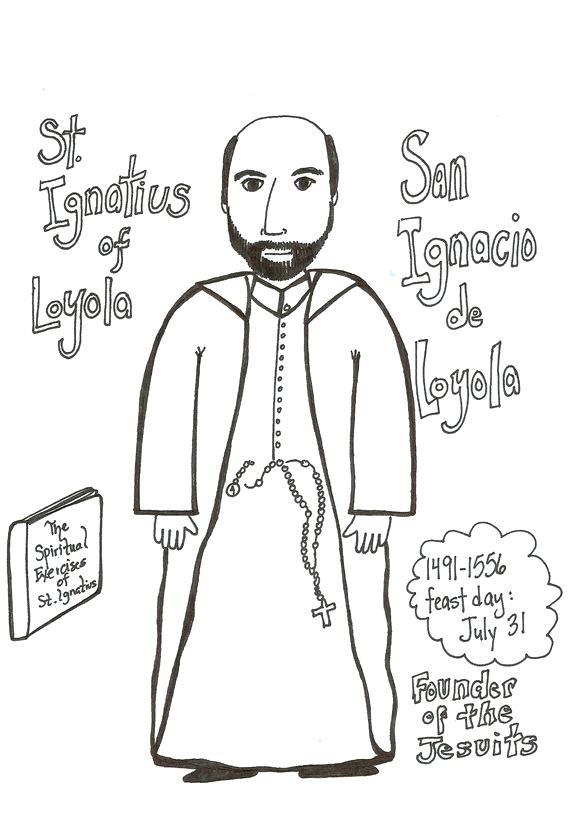 St.
Ignatius
of
Loyola
San
Ignacio
de
Loyola
The
Spiritual
Exercises
of
St. Ignatius
1491-1556
feast day:
July 31
Founder
of the
Jesuits